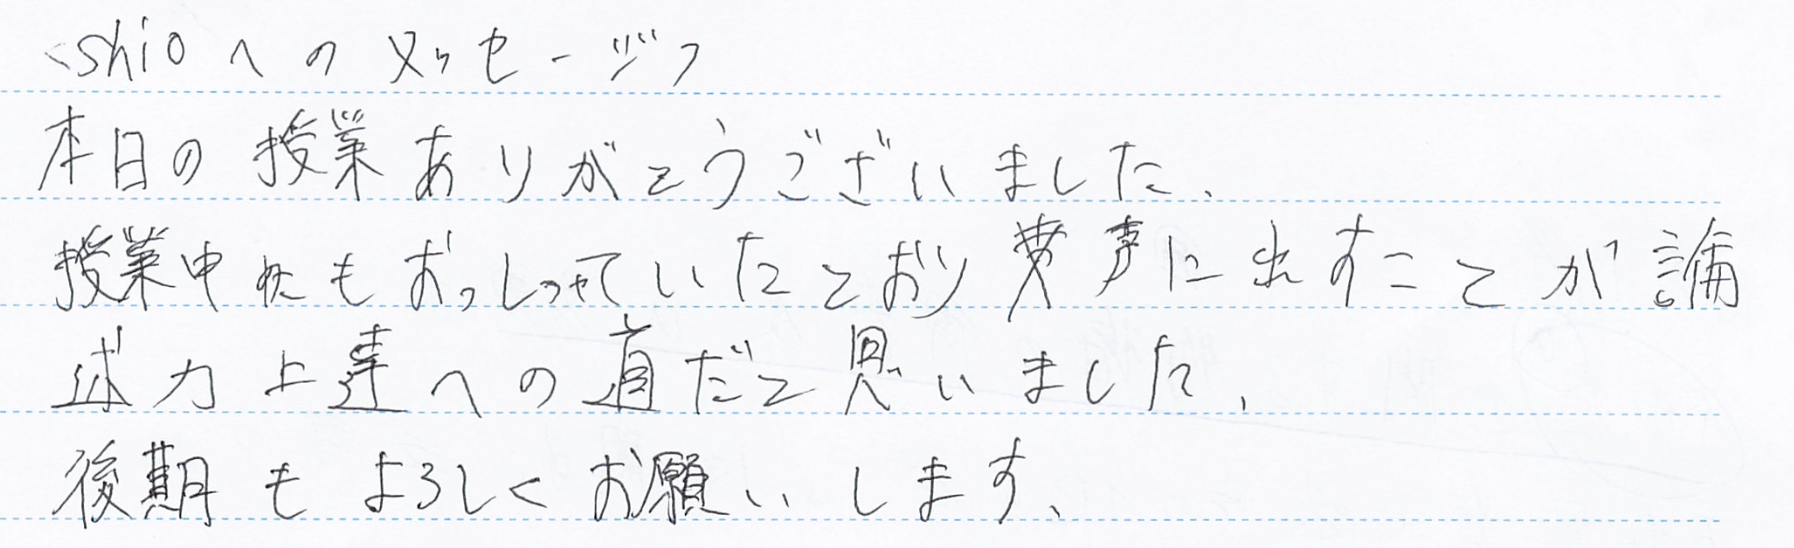 <shioへのメッセージ>
本日の授業ありがとうございました。
授業中にもおっしゃっていたとおり声に出すことが論
述力上達への道だと思いました。
後期もよろしくお願いします。